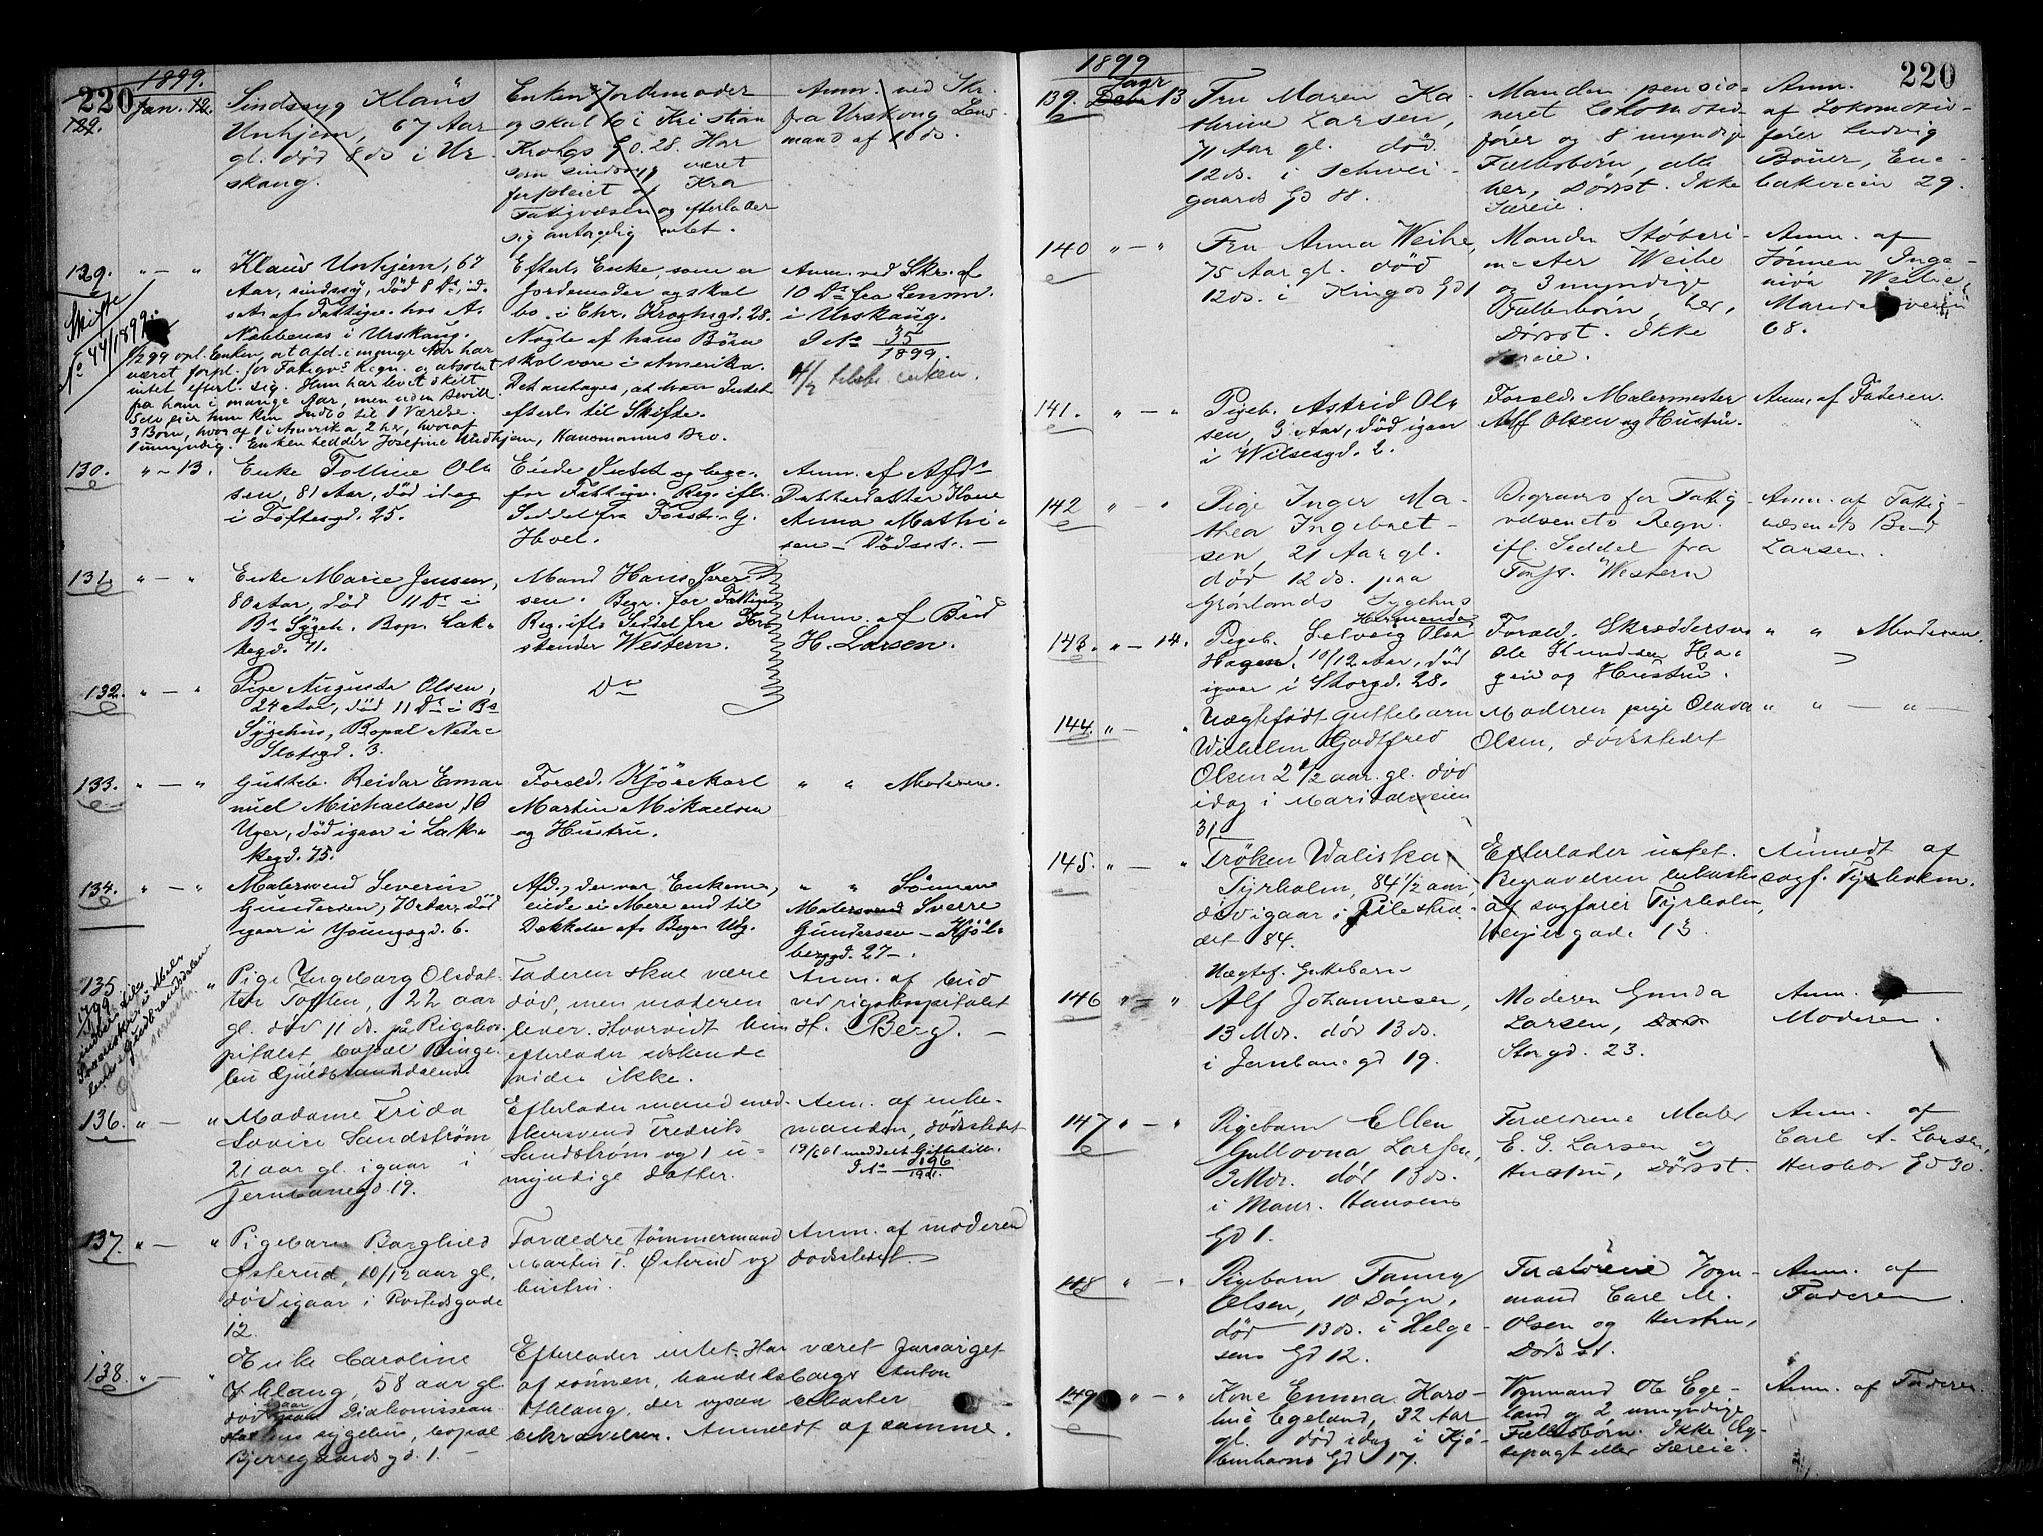 220
1899.
129. Jan. 12.
Sindssyg Klaüs
Unhjem, 67 Aar
gl. død 8 ds i Ur-
skaug.
Enken Jordemoder
og skal bo i Kristian
Krohgs Gd. 28. Har
som sindssyg været
forpleiet af Kra
Fattigvæsen og efterlader
sig antagelig intet.
Anm. ved Skr.
fra Urskoug Lens
mand af 10 ds.
129. " — "
Skifte
No 44/1899.
Klaus Unhjem, 67
Aar, sindssyg, død 8 Ds, ud-
sat af Fattigv. hos A.
Nabbenes i Urskaug.
Efterl. Enke, som er
Jordemoder og skal
bo i Chr. Kroghsgd. 28.
Nogle af hans Børn
skal være i Amerika.
Det antages, at han Intet
efterl. til Skifte.
Anm. ved Skr. af
10 Ds fra Lensm.
i Urskaug.
J No 35/1899.
tilsk. enken.
99 opl. Enken, at Afd. i mange Aar har
været forpl. for Fattigvs Regn. og absolut
intet efterl. sig. Hun har levet skilt
fra ham i mange Aar, men uden Bevill.
Selv eier hun kun Indbo til 1 Værelse.
3 Børn, hvoraf 1 i Amerika, 2 her, hvoraf
1 umyndig. Enken hedder Josefine Undhjem, Hansmanns Bro.
130. " - 13.
Enke Tolline Ol-
sen, 81 Aar, død idag
i Toftesgd. 25.
Eiede Intet og begr.
for Fattigv. Reg. ifl.
Seddel fra Forst. G.
Hoel.
Anm. af Afds
Datterdatter Kone
Anna Mathi-
sen — Dødsst. —
131. " — "
Enke Marie Jensen,
80 Aar, død 11 Ds i
Bs Sygeh. Bop. Lak-
kegd. 71.
Mand Hans Iver
sen. Begr. for Fattigv.
Reg. ifl. Seddel fra For-
stander Western.
Anm. af Bud
H. Larsen.
132. " — "
Pige Augusta Olsen,
24 Aar, død 11 Ds i Bs
Sygehus, Bopæl Nedre
Slotsgd. 3.
Do
133. " — "
Gutteb. Reidar Ema-
nuel Michaelsen, 10
Uger, død igaar i Lak-
kegd. 75.
Foræld. Kjørekarl
Martin Mikaelsen
og Hustru.
" " Moderen.
134. " — "
Malersvend Severin
Gundersen, 70 Aar, død
igaar i Youngsgd. 6.
Afd., der var Enkem.,
eiede ei Mere end til
Dækkelse af Begr. Udg.
" " Sønnen
Malersvend Sverre
Gundersen — Kjøl-
berggd. 27 —.
135 "
Pige Ingeborg Olsdat-
ter Toften, 22 aar
gl. død 11 ds. på Rigshos-
pitalet, bopæl Ringe-
bu Guldbrandsdalen.
Faderen skal være
død, men moderen
lever. Hvorvidt hun
efterlader sig
vides ikke.
Anm. af bud
ved rigshospitalet
H. Berg. —
136. " — "
Madame Frida
Lovise Sandstrøm
21 aar gl. igaar i
Jernbanegd. 19.
Efterlader mand
Fredrik
Sandstrøm og 1 u-
myndige datter.
Anm. af enke-
manden, dødsstedet
19/6 01 meddelt Giftetill.
J No 196/1901
137. " — "
Pigebarn Borghild
Østerud, 10/12 aar gl.
død igaar i Rostedsgade
12.
Forældre tømmermand
Martin T. Østerud og
hustru.
Anm. af moderen
dødsstedet. —
138. " — "
Enke Caroline
58 aar gl.
død igaar Diakonissean-
staltens sygehus, bopæl
Bjerregaardsgd. 1. —
Efterlader intet. Har været forsørget
af sønnen, handelsborger Anton
der ogsaa bekoster
bekravelsen. Anmeldt af samme.
220
1899
139. Janr 13
Fru Maren Ka-
thrine Larsen,
71 Aar gl. død
12 ds. i Schwei-
gaards Gd 88.
Manden pensio-
neret Lokomotiv-
fører og 8 myndige
Fællesbørn, alle
her, Dødsst. Ikke
Særeie.
Anm.
af Lokomotiv-
fører Ludvig
Boüer, Ene-
bakveien 29.
140 " — "
Fru Anna Weihe,
75 Aar gl. død
12 ds. i Kingos Gd 1
Manden Støberi-
mester Weihe
og 3 myndige
Fællesbørn, her,
Dødsst. Ikke
Særeie.
Anm. af
Sønnen Inge-
niør Weihe,
Maridalsveien
68.
141. " — "
Pigeb. Astrid Ol-
sen, 3 Aar, død igaar
i Wilsesgd. 2.
Foræld. Malermester
Alf Olsen og Hustru.
Anm. af Faderen.
142 " — "
Pige Inger Ma-
thea Ingebret-
sen, 21 Aar gl.
død 12 ds. paa
Grønlands Sygehus
Begraves for Fattig
væsenets Regn.
ifl. Seddel fra
Forst. Western
Anm. af Fattig-
væsenets Bud
Larsen.
143. " — 14.
Pigeb. Solveig Olsen
Hagen, 10/12 Aar, død
igaar i Storgd. 28.
Foræld. Skræddersv.
Ole Knudsen Ha-
gen og Hustru.
" " Moderen.
144. " — "
Uægtefødt Guttebarn
Wilhelm Godtfred
Olsen 2 1/2 aar. gl. død
idag i Maridalsveien
31.
Moderen pige Olava
Olsen, dødsstedet
" " — " —
145. " — "
Frøken Valiska
Tyrholm, 84 1/2 aar,
død igaar i Pilestræ-
det 84.
Efterlader intet.
Begravelsen bekostes
af sagfører Tyrholm,
Anmeldt af
sagf. Tyrholm.
146 " — "
Uægtef. Guttebarn
Alf Johannesen,
13 Mdr. død 13 ds.
i Jernbanegd 19.
Moderen Gunda
Larsen,
Storgd. 23.
Anm. af
Moderen.
147 " — "
Pigebarn Ellen
Gullovna Larsen,
3 Mdr. død 13 ds.
i Maur. Hansens
Gd 1.
Forældrene Maler
E. G. Larsen og
Hustru, Dødsst.
Anm. af
Carl A. Larsen,
Herslebs Gd 30.
148 " — "
Pigebarn Fanny
Olsen, 10 Døgn,
død 13 ds. i Helge-
sens Gd 12.
Forældrene Vogn-
mand Carl M.
Olsen og Hustru,
Dødsst.
Anm. af
Faderen.
149 " — "
Kone Emma Karo-
line Egeland, 32 Aar
gl. død idag i Kjø-
benhavns Gd 17.
Vognmand O. Ege-
land og 2 umyndige
Fællesbørn. Ikke Æg-
tepagt eller Særeie.
Anm. af Faderen.